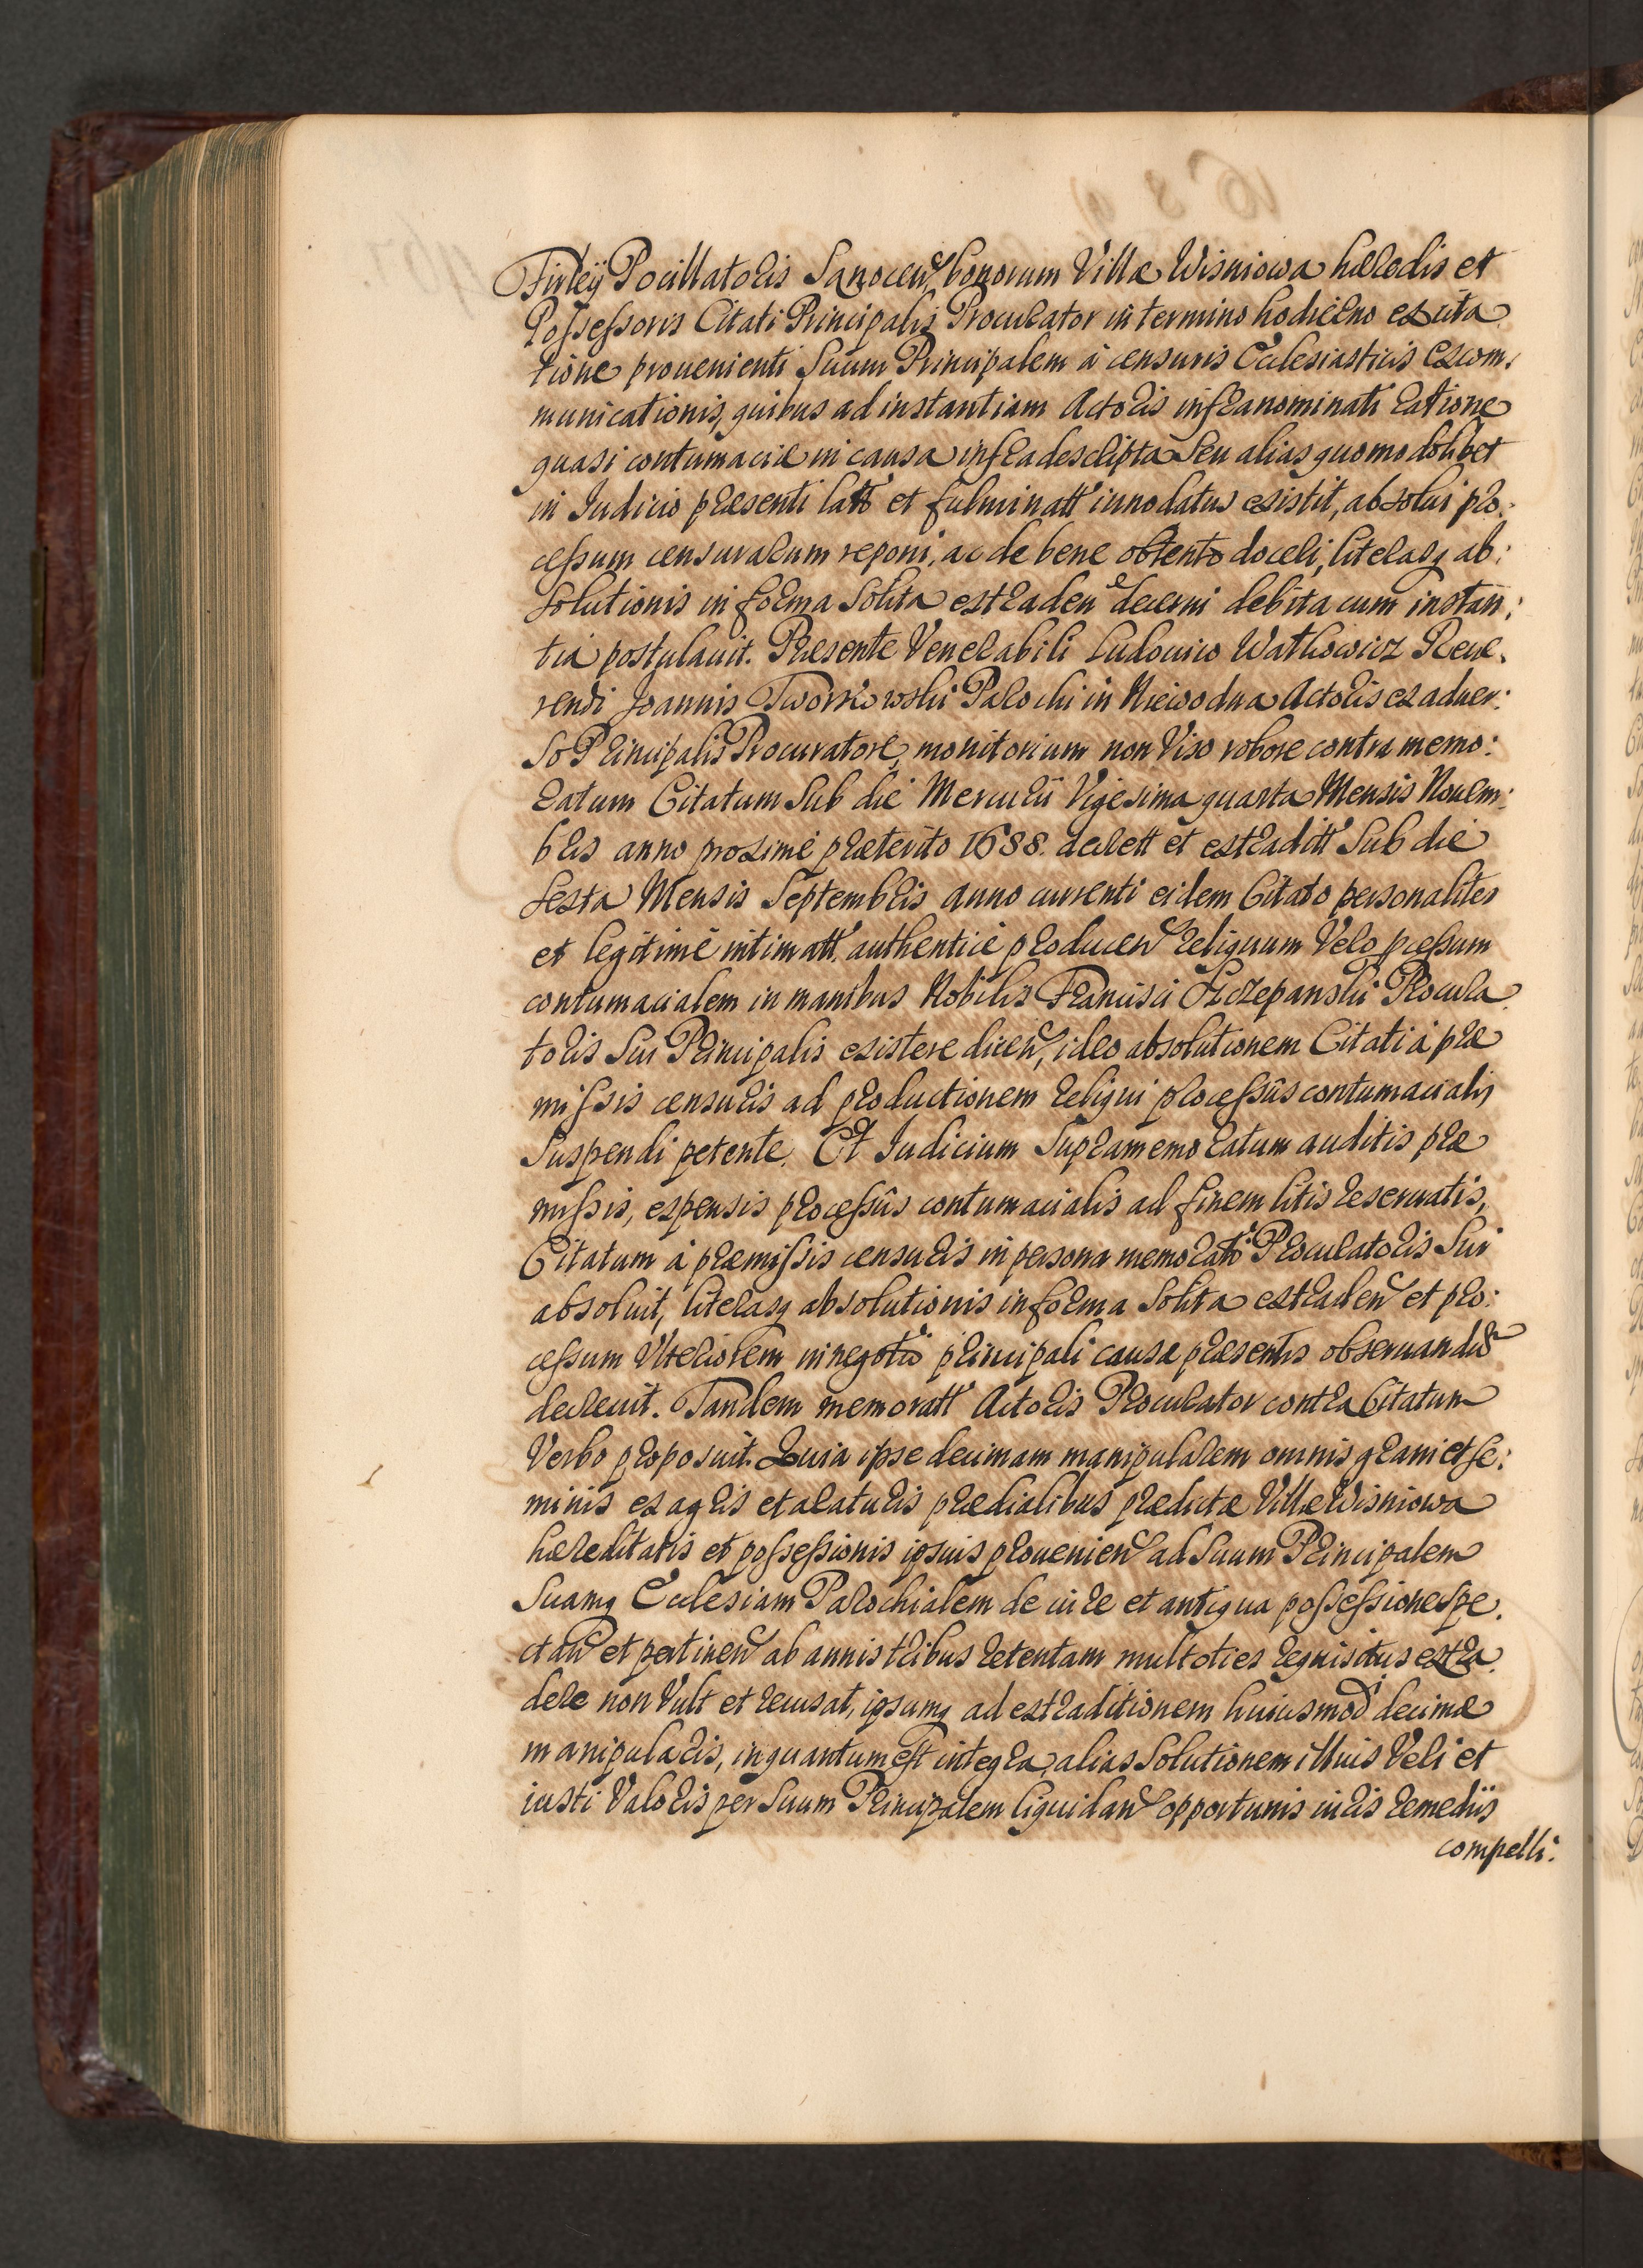 Firleÿ Pocillatoris Sanocen bonorum Villæ Wisniowa hæredis et
Possessoris Citati Principalis Procurator in termino hodierno ex cita
tione prouenienti Suum Principalem à censuris Ecclesiasticis excom:
municationis, quibus ad instantiam Actoris infranominati ratione
quasi contumaciæ in causa infradescripta Seu alias quomodolibet
in Iudicio præsenti latt et fulminatt innodatus existit, absolui pro:
cessum censurarum reponi, ac de bene obtento doceri, literasq ab:
solutionis in forma Solita extraden decerni debita cum instan:
tia postulauit. Præsente Venerabili Ludouico Watkowicz Reue:
rendi Joannis Tworkowski Parochi in Niewodna Actoris ex aduer:
so Principalis Procuratore, monitorium non Viso robore contra memo:
ratum Citatum Sub die Mercurii Vigesima quarta Mensis Nouem:
bris anno proxime præterito 1688. decrett et extraditt Sub die
sexta Mensis Septembris anno currenti eidem Citato personaliter
et legitimè intimatt authenticè producen reliquum Vero processum
contumacialem in manibus Nobilis Francisci Szczepanski Procura
toris Sui Principalis existere dicen, ideo absolutionem Citati à præ
missis censuris ad productionem reliqui processûs contumacialis
Suspendi petente. Et Iudicium Supramemoratum auditis præ
missis, expensis processûs contumacialis ad finem litis reseruatis,
Citatum à præmissis censuris in persona memorati Procuratoris Sui
absoluit, literasq absolutionis in forma Solita extraden et pro:
cessum Vlteriorem in negotio principali causæ præsentis obseruandum
decreuit. Tandem memoratt Actoris Procurator contra Citatum
Verbo proposuit. Quia ipse decimam manipularem omnis grani et se:
minis ex agris et araturis prædialibus prædictæ Villæ Wisniowa
hæreditatis et possessionis ipsius prouenien ad Suum Principalem
Suamq Ecclesiam Parochialem de iure et antiqua possessione spe:
ctan et pertinen ab annis tribus retentam multoties requisitus extra
dere non Vult et recusat, ipsumq ad extraditionem huiusmod decimæ
manipularis, inquantum est integra, alias Solutionem illius Veri et
iusti Valoris per Suum Principalem liquidan opportunis iuris remediis
compelli: